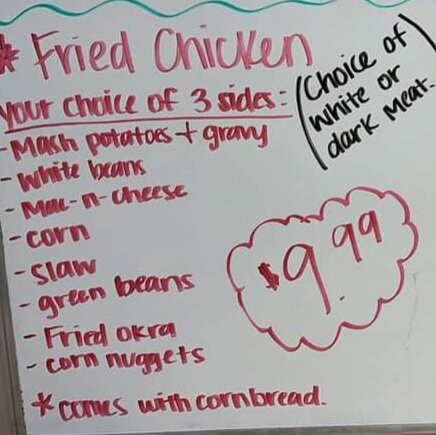 * Fried Chicken
(Choice of
White or
dark meat.
your choice of 3 sides:
- Mash potatoes + gravy
- White beans
- Mac-n-cheese
- corn
- slaw
- green beans
- Fried okra
- corn nuggets
$9.99
* comes with cornbread.